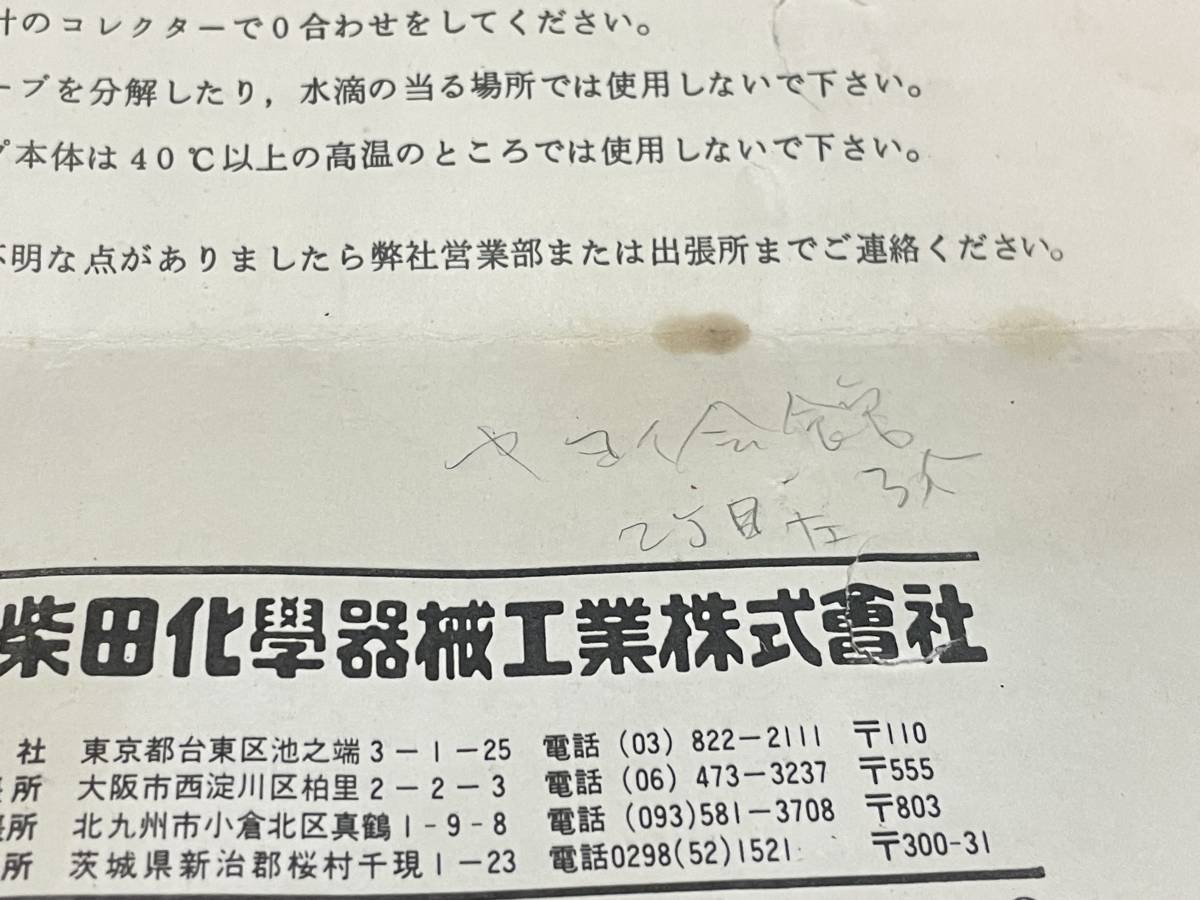 計のコレクターで0合わせをしてください。
ーブを分解したり，水滴の当る場所では使用しないで下さい。
プ本体は40℃以上の高温のところでは使用しないで下さい。
不明な点がありましたら弊社営業部または出張所までご連絡ください。
2丁目左
柴田化學器械工業株式會社
社 東京都台東区池之端3－1－25 電話（03）822－2111 〒110
所 大阪市西淀川区柏里2－2－3 電話（06）473－3237 〒555
所 北九州市小倉北区真鶴1-9-8 電話（093)581－3708 〒803
所 茨城県新治郡桜村千現1－23 電話0298(52)1521 〒300-31